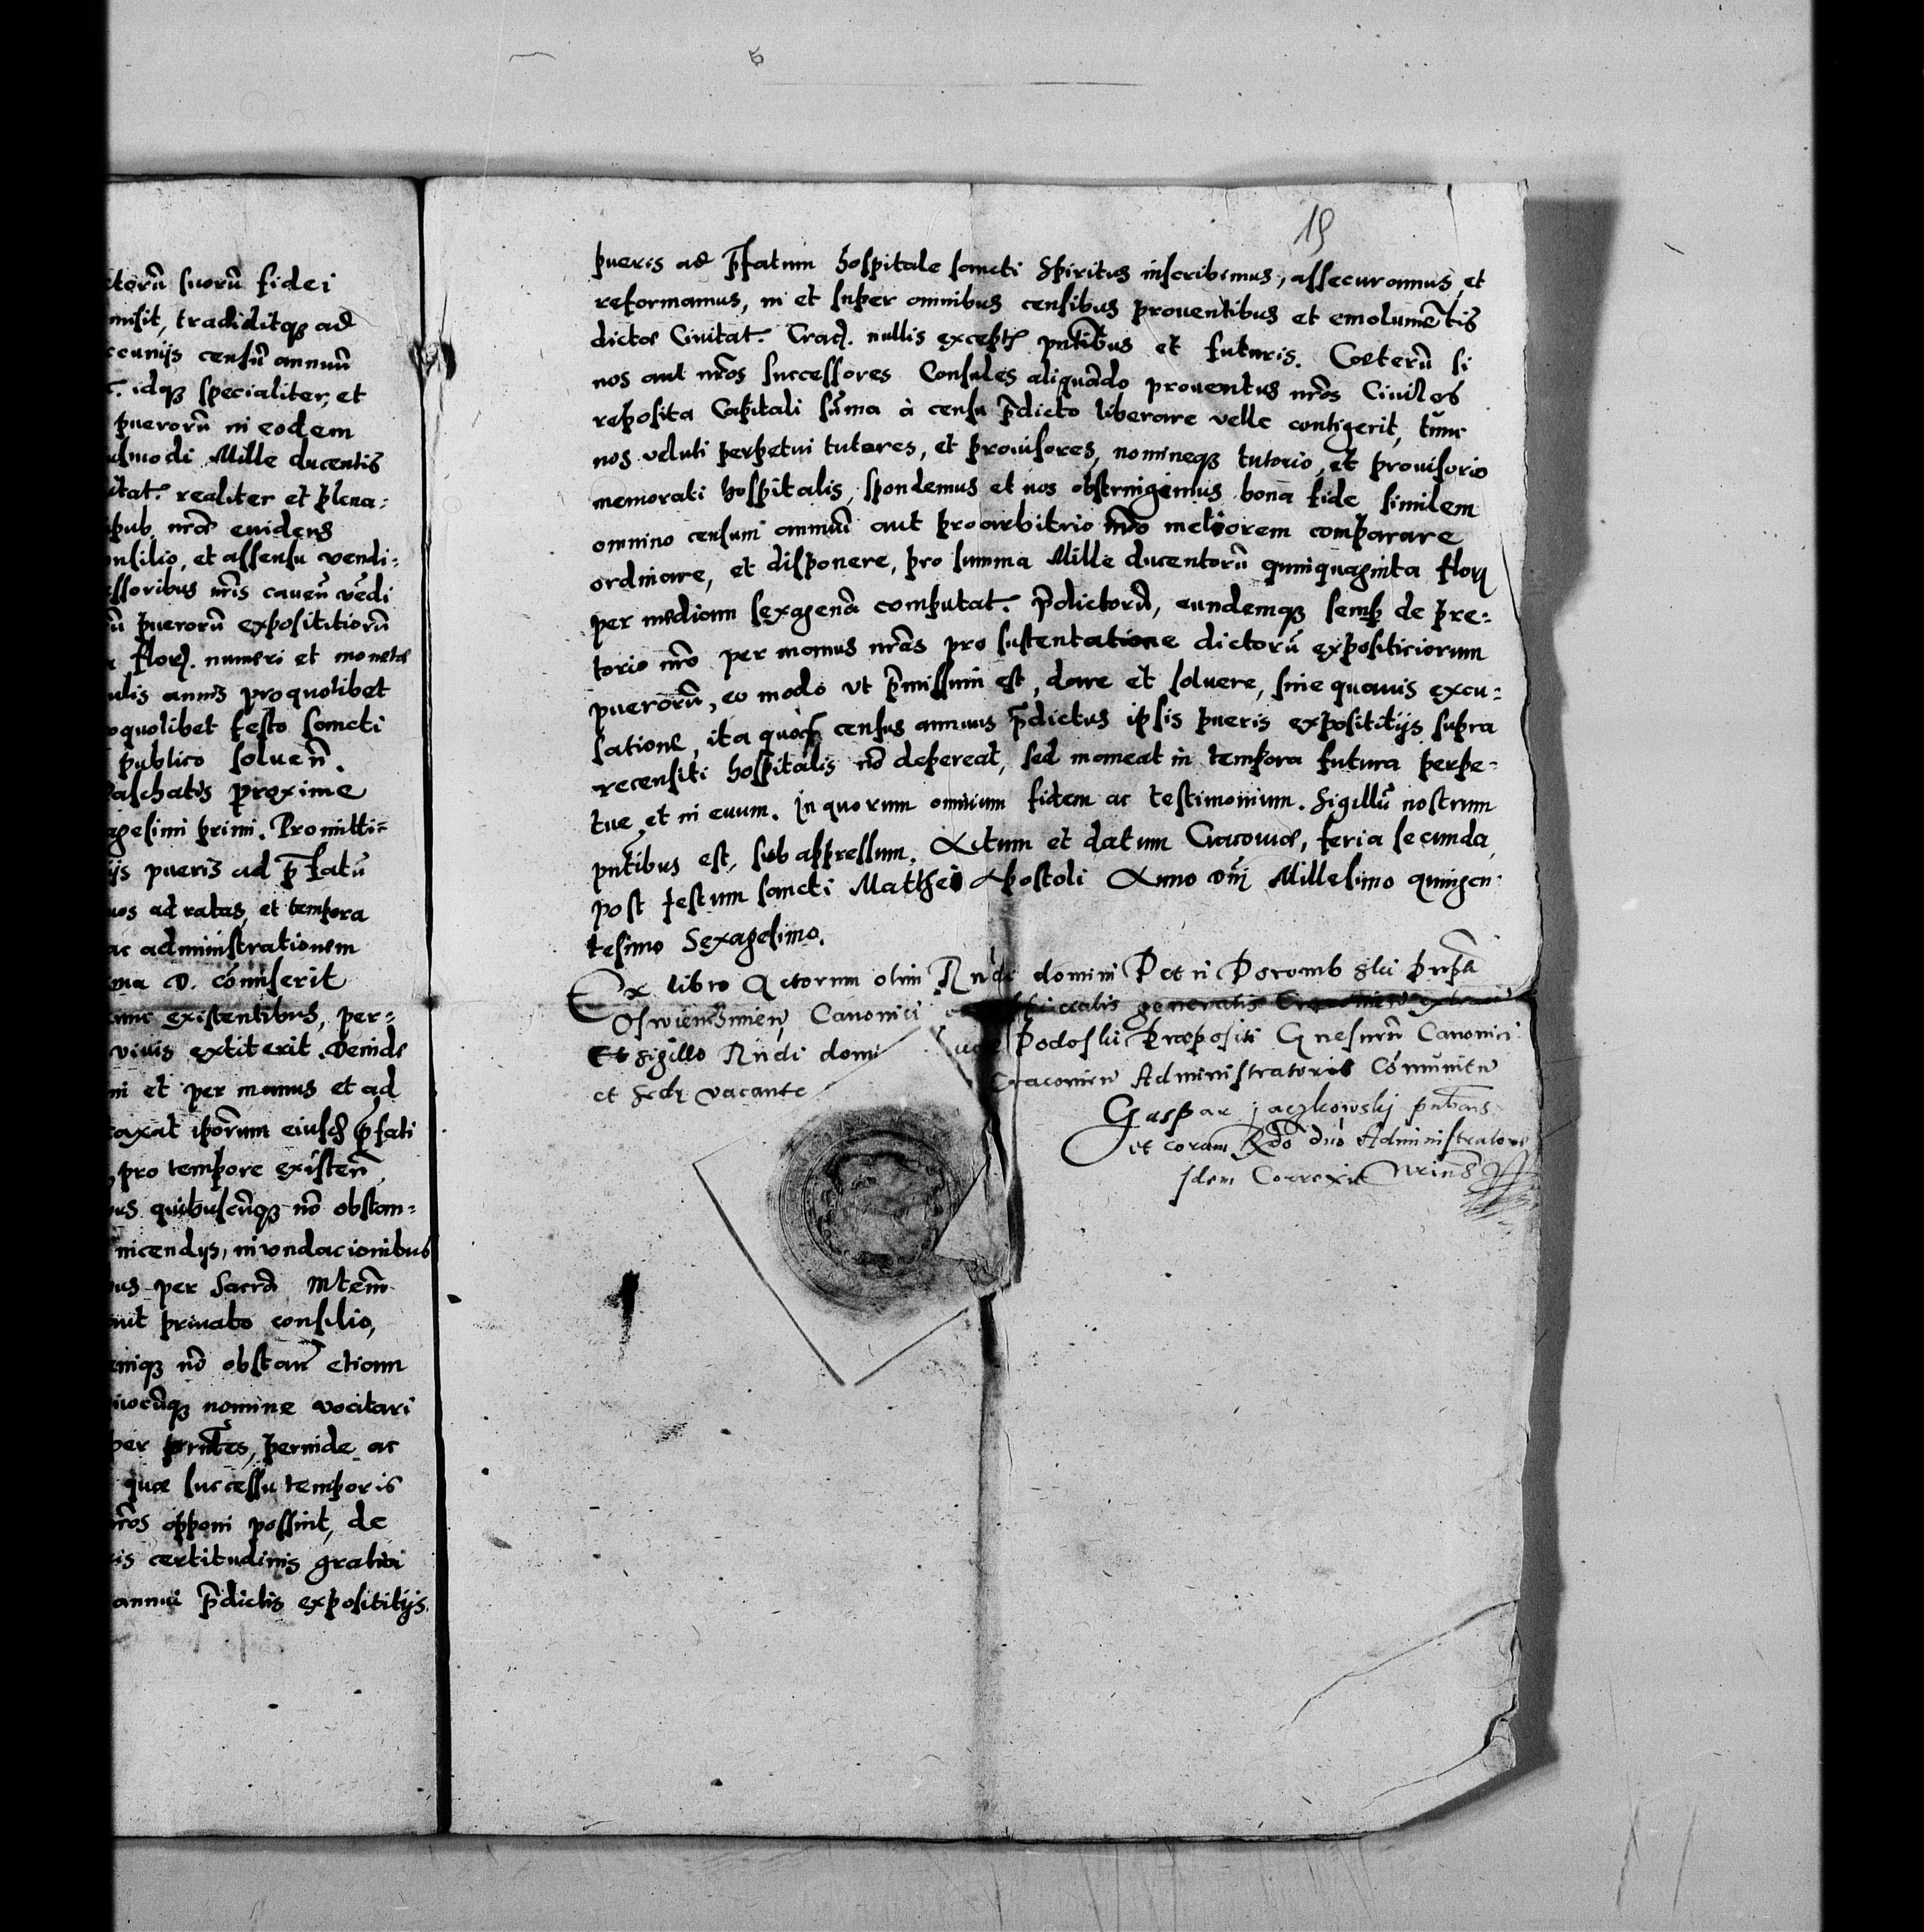 ctorũ suorũ fidei
misit, tradiditqꝫ ad
cunijs censũ annuũ
idqꝫ specialiter, et
puerorũ in eodem
usmodi Mille ducentis
itat. realiter et plena:
pub. nrã euidens
onsilio, et assensu vendi:
essoribus nris caueñ vẽdi
ũ puerorũ expositiorũ
floꝝ. numeri et monetæ
ulis annis pro quolibet
oquolibet festo Sancti
publico solueñ.
Paschatis proxime
agesimi primi. Promitti=
ijs pueris ad p̃fatũ
uos ad ratas, et tempora
ac administrationem
ma D. cõmiserit
unc existentibus, per=
viuis extiterit. Deinde
ni et per manus et ad
taxat ipõrum eiusd p̃fati
pro tempore existeñ
us quibuscũqꝫ nõ obstan=
incendijs, inundacionibus
us per Sacrã Mtem̃
aut priuato consilio,
nõ obstañ etiam
uocũqꝫ nomine vocitari
per pñtes, perinde ac
quæ successu temporis
nr̃os opponi possint, de
is certitudinis gratia
annui p̃dictis expositijs
19
pueris ad p̃fatum hospitale sancti Spiritus inscribimus, assecuramus, et
reformamus, in et super omnibus censibus prouentibus et emolumẽtis
dictæ Ciuitat. Crac. nullis exceptis pñtibus et futuris. Cæterũ si
nos aut nr̃os successores Consules aliquãdo prouentus nr̃os Ciuiles
reposita Capitali sũma à censu p̃dicto liberare velle contigerit, tũnc
nos veluti perpetui tutores, et prouisores, nomineqꝫ tutorio, et prouisorio
memorati hospitalis, spondemus et nos obstringimus bona fide similem
omnino censum annuũ aut pro arbitrio nr̃o meliorem comparare
ordinare, et disponere, pro summa Mille ducentorũ quinquaginta floꝝ
per mediam sexagenã computat. p̃dictorũ, eundemqꝫ semp̱ de præ=
torio nr̃o per manus nr̃as pro sustentatione dictorũ expositiciorum
puerorũ, eo modo ut p̃missum est, dare et soluere, sine quauis excu=
satione, ita quod census annuus p̃dictus ipsis pueris expositijs supra
recensiti hospitalis nõ depereat, sed maneat in tempora futura perpe=
tuè, et in euum. In quorum omnium fidem ac testimonium. Sigillũ nostrum
pñtibus est, subappressum. Actum et datum Cracouiæ, feria secunda,
post festum sancti Matthei Apostoli Anno Dñi Millesimo quingen=
tesimo Sexagesimo.
Ex libro Actorum olim Rndi domini Petri Porembski præp̃ti
Oswiencimen̄, Canonici officialis generalis Cracouien̄
Et sigillo Rndi domi Podoski Præpositi Gnesneñ Canonici
et Sede vacante Cracouien̄ Administratoris Cõmunitũ
Gaspar Jaczkowskj
et coram Rdo dno Administratore
Idem Correxit